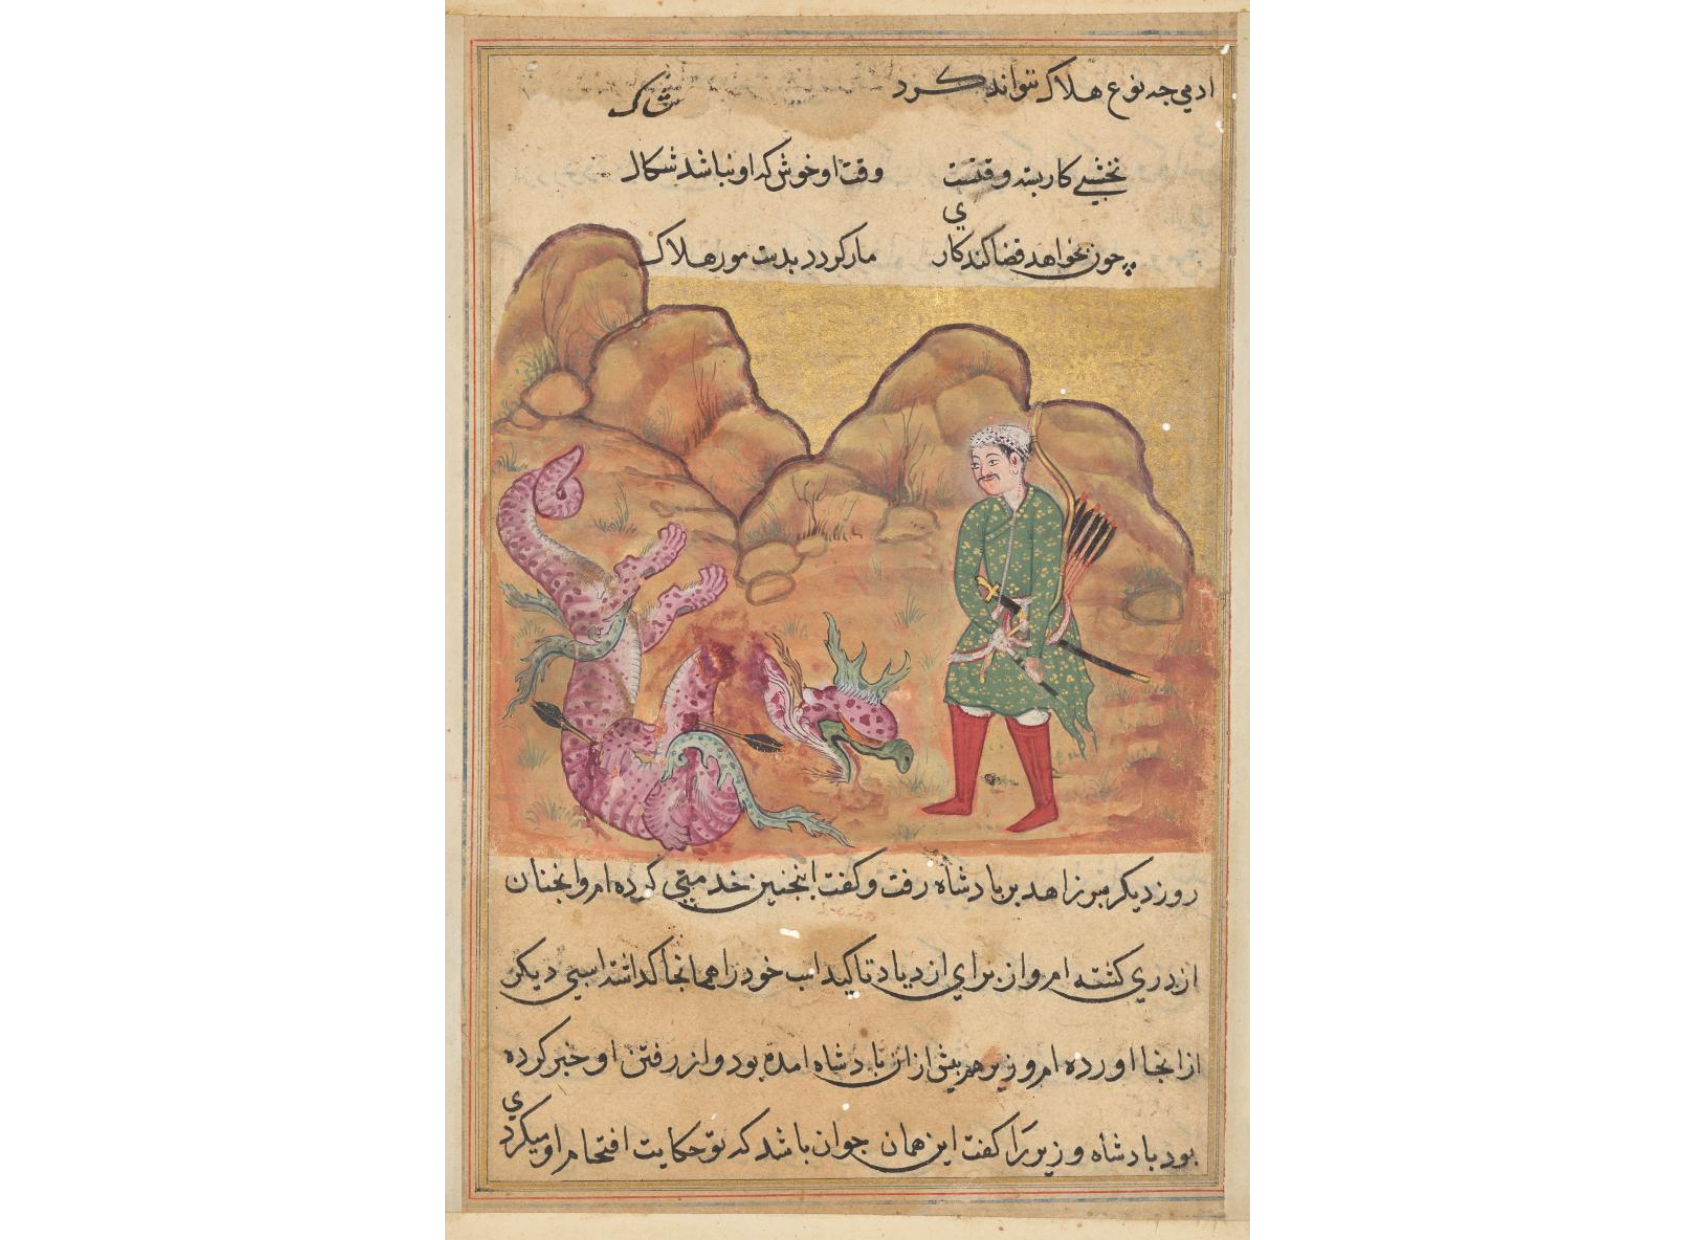 ادمی جه نوع هلاک نتواند کرد
نخشبی کار بسته وقتست وقت او خوش که او نباشد شکال
چون بخواهد قضا کند کاری مار کردد بدست مور هلاک
روز دیکر میرزاهد بر بادشاه رفت و کفت اینجنین خدمتی کرده ام و انجنان
ازدری کشته ام و از برای ازدیاد تاکید اسب خود را همانجا کذاشته اسبی دیکر
از انجا اورده ام وزیر هم بیش از ان بادشاه امده بود و از رفتن او خبر کرده
بود بادشاه وزیر را کفت این همان جوان باشد که تو حکایت اقتحام او میکردی